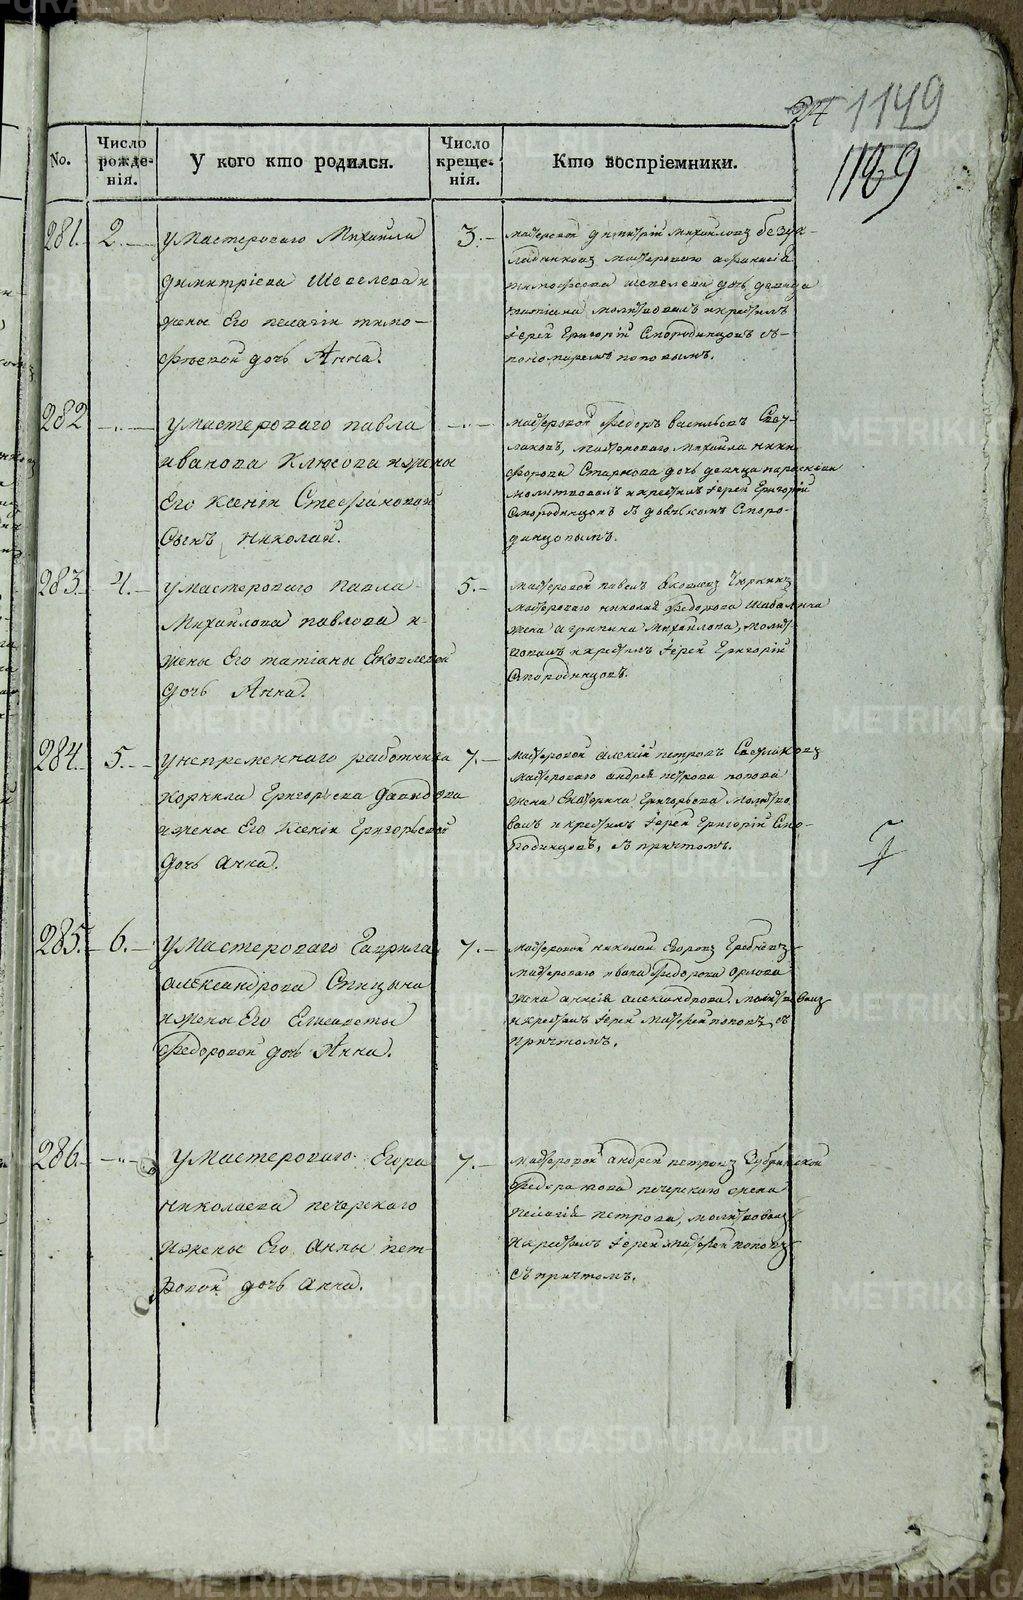 24 1149
1169
No.
Число рожде-нія.
У кого кто родился.
Число креще-нія.
Кто воспріемники.
281. 2.
у мастероваго Михаила
димитріева Шевелева и
жены Его пелагіи тимо-
фѣевой дочь Анна.
3.
мастеровой димитрій Михайловъ
мастероваго
тимофеева дочь девица
молитвовалъ и крестилъ
Іерей Григорій Смородинцовъ съ
пономаремъ поповымъ.
282
у мастероваго павла
иванова Клюсова и жены
Его Ксеніи Стефановой
Сынъ Николай.
мастеровой Федоръ васильевъ
мастероваго Михаила ники-
форова Старкова дочь девица параскева
молитвовалъ и крестилъ Іерей Григорій
Смородинцовъ съ дьячкомъ Сморо-
динцовымъ.
283. 4.
у мастероваго Павла
Михайлова павлова и
жены Его татіаны Яковлевой
дочь Анна.
5.
Мастеровой павелъ Яковлевъ
мастероваго николая Федорова Шабалина
жена агрипина Михайлова, молит-
вовалъ и крестилъ Іерей Григорій
Смородинцовъ.
284. 5.
у непременнаго работника
корнила Григорьева давыдова
и жены Его Ксеніи Григорьевой
дочь анна.
7.
мастеровой алексій петровъ
мастероваго андрея петрова попова
жена Екатерина Григорьева молитво
валъ и крестилъ Іерей Григорій Смо-
родинцовъ, съ причтомъ.
285. 6.
у мастероваго Гаврила
александрова Спицына
и жены Его Елисаветы
Федоровой дочь Анна.
7.
мастеровой николай Егоровъ Гребневъ
мастероваго ивана Федорова орлова
жена александрова. молитвовалъ
и крестилъ Іерей Матфей поповъ, съ
причтомъ.
286.
у мастероваго Егора
николаева печерскаго
и жены Его анны пет-
ровой дочь анна.
7.
мастеровой андрей петровъ
Федора печерскаго жена
пелагія петрова, молитвовалъ
и крестилъ Іерей матфей поповъ
съ причтомъ.
METRIKI.GASO-URAL.RU